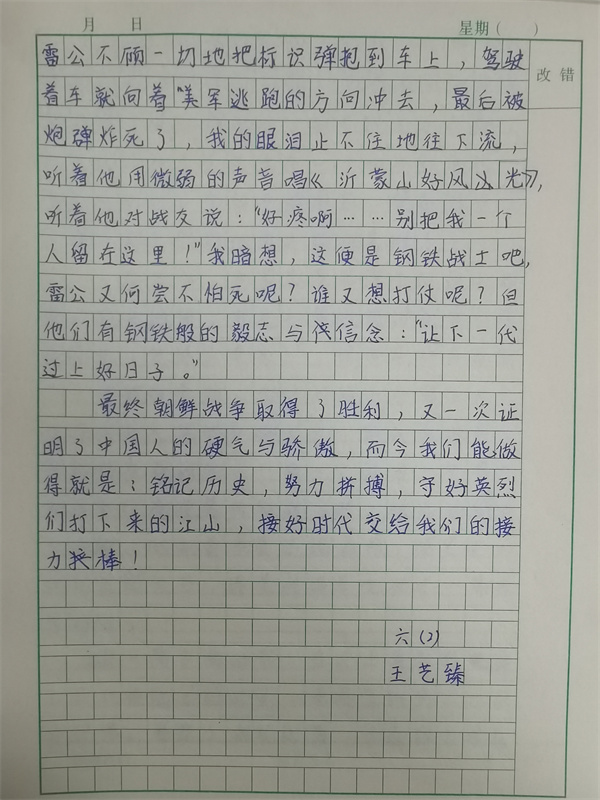 月 日 星期( )
改错
雷公不顾一切地把标识弹抱到车上，驾驶
着车就向着"美军逃跑的方向冲去，最后被
炮弹炸死了，我的眼泪止不住地往下流，
听着他用微弱的声音唱《沂蒙山好风光》，
听着他对战友说："好疼啊……别把我一个
人留在这里！"我暗想，这便是钢铁战士吧，
雷公又何尝不怕死呢？谁又想打仗呢？但
他们有钢铁般的毅志与信念："让下一代
过上好日子。"
最终朝鲜战争取得了胜利，又一次证
明了中国人的硬气与骄傲，而今我们能做
得就是：铭记历史，努力拼搏，守好英烈
们打下来的江山，接好时代交给我们的接
力棒！
六(2)
王艺臻